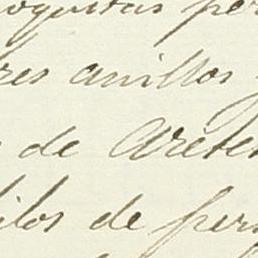 oquitas per
res anillos
de Areten
ilos de per